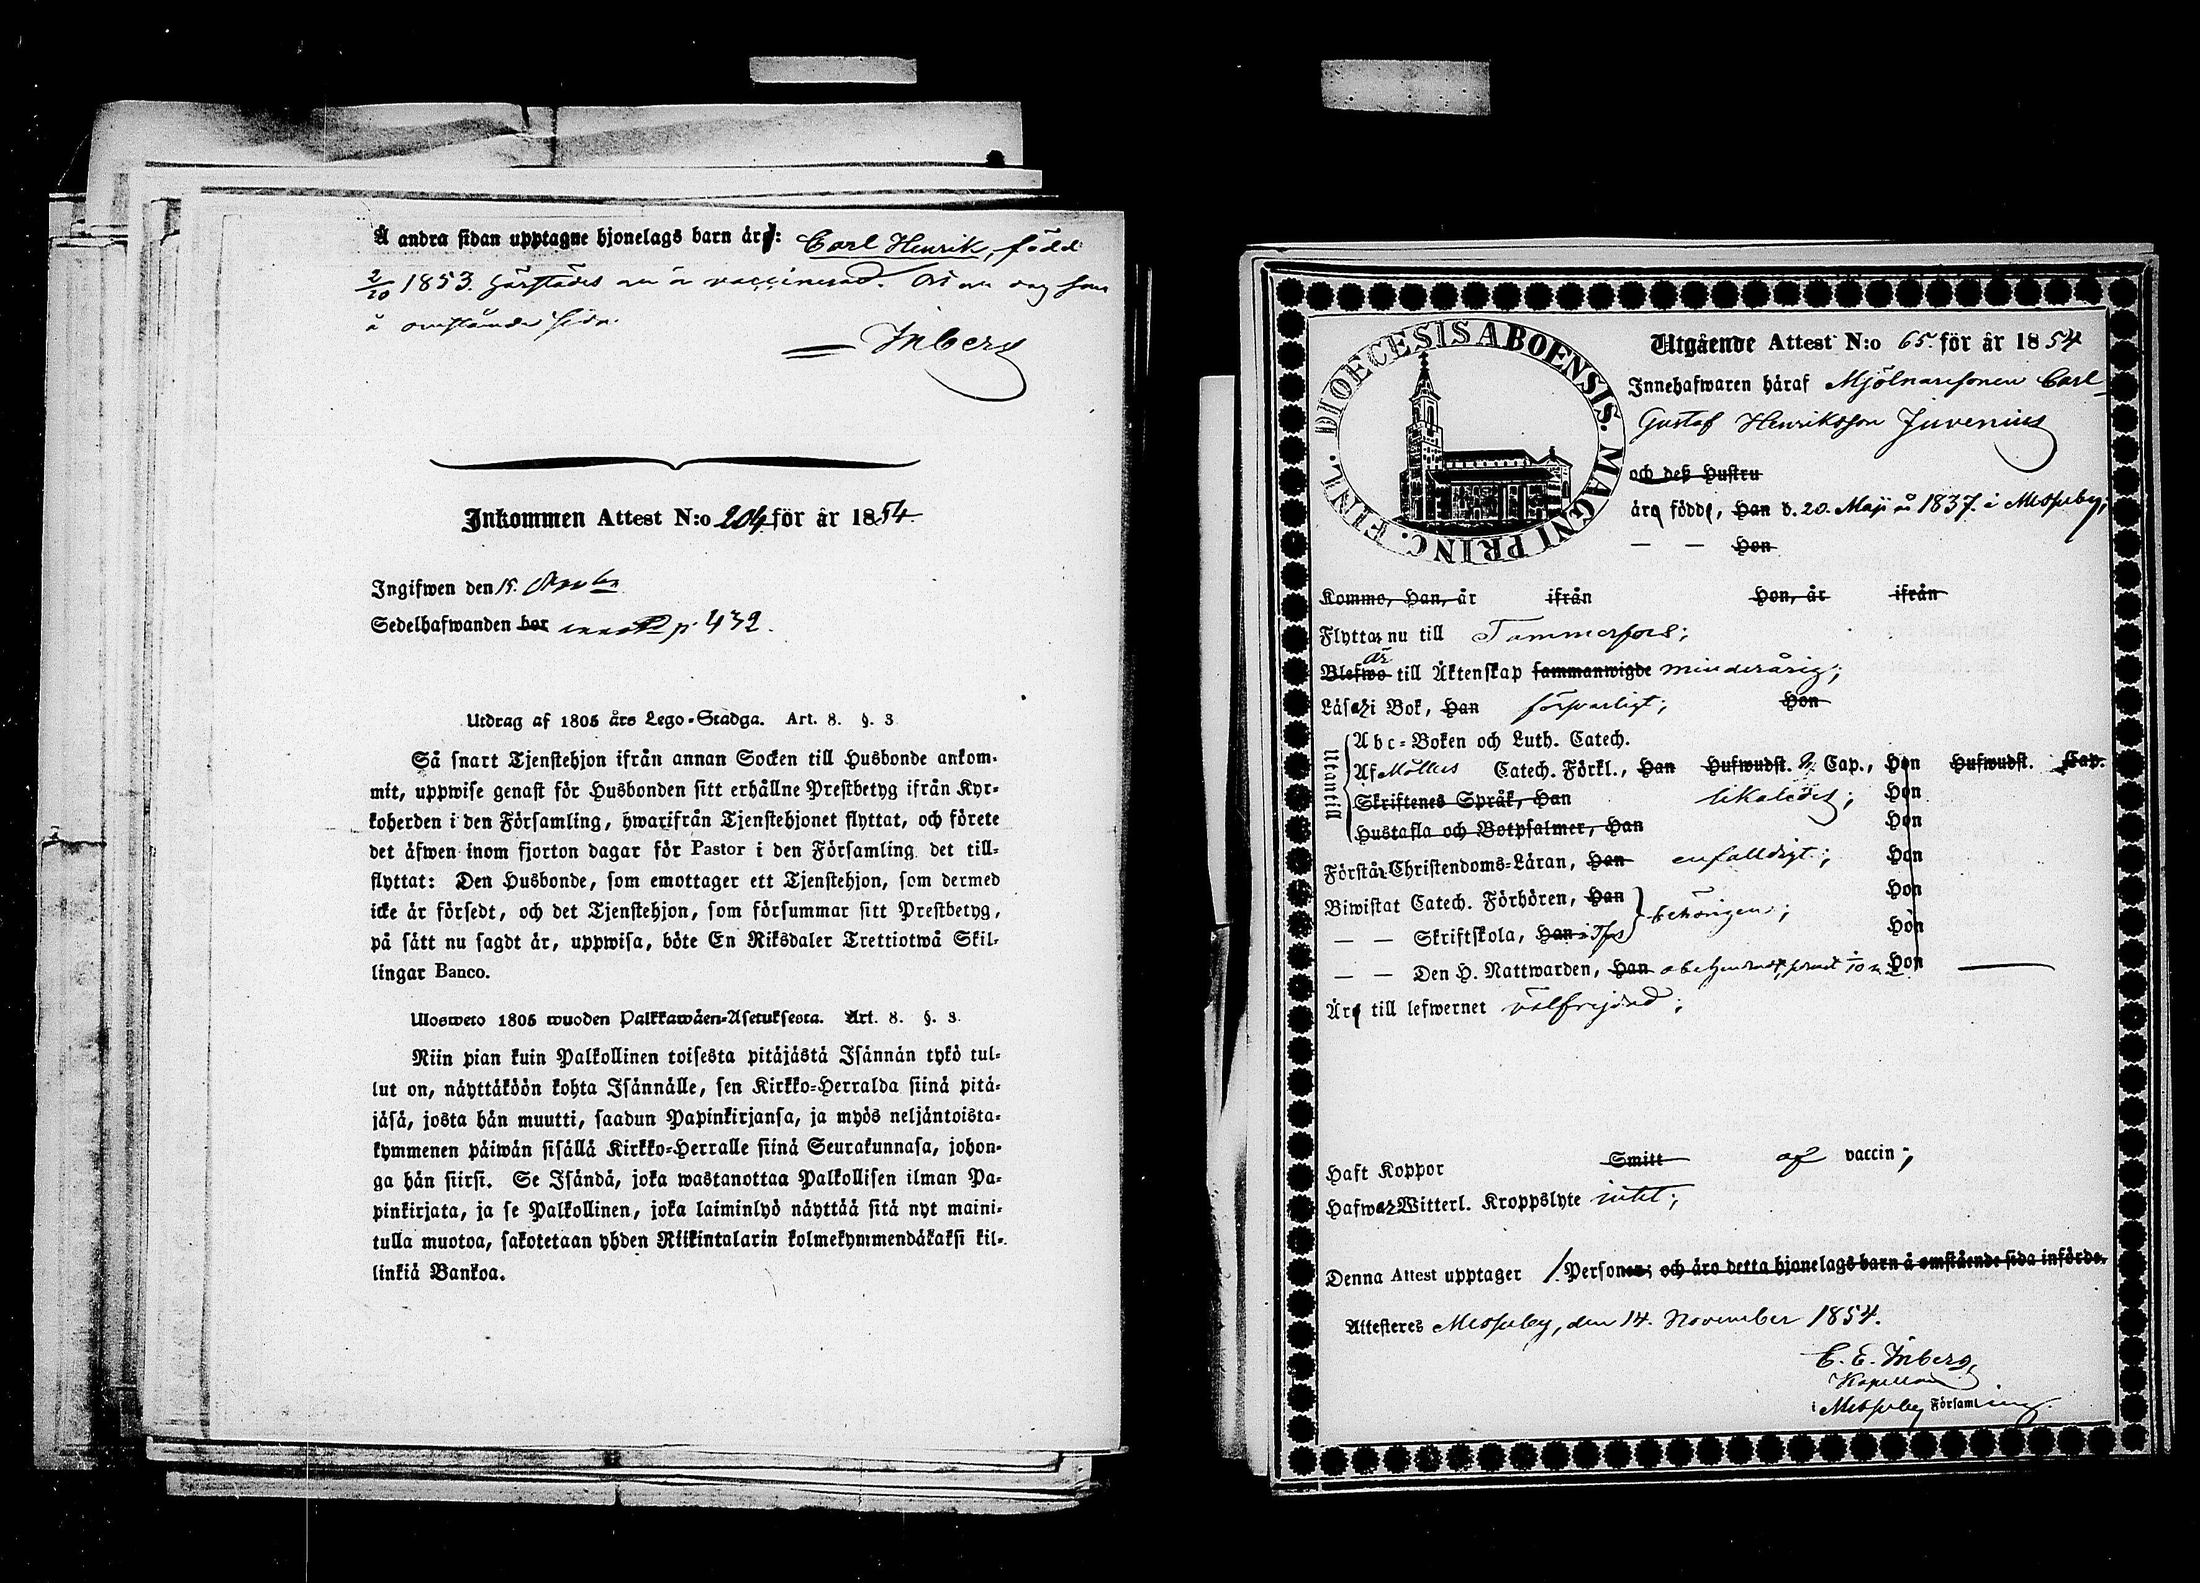 Å andra sidan upptagne hjonelags barn är: Carl Henrik, född
2/10 1853. härstädes och är vaccinerad. som
å omstående sida.
Inberg
Inkommen Attest N:o 204 för år 1854.
Ingifwen den 15.
Sedelhafwanden bor p. 432.
Utdrag af 1805 års Lego-Stadga. Art. 8. §. 3
Så snart Tjenstehjon ifrån annan Socken till Husbonde ankom-
mit, uppwise genast för Husbonden sitt erhållne Prestbetyg ifrån Kyr-
koherden i den Församling, hwarifrån Tjenstehjonet flyttat, och förete
det äfwen inom fjorton dagar för Pastor i den Församling det till-
flyttat: Den Husbonde, som emottager ett Tjenstehjon, som dermed
icke är försedt, och det Tjenstehjon, som försummar sitt Prestbetyg,
på sätt nu sagdt är, uppwisa, böte En Riksdaler Trettiotwå Skil-
lingar Banco.
Ulosweto 1805 wuoden Palkkawäen-Asetuksesta. Art. 8. §. 3.
Niin pian kuin Palkollinen toisesta pitäjästä Isännän tykö tul-
lut on, näyttäköön kohta Isännälle, sen Kirkko-Herralda siinä pitä-
jäsä, josta hän muutti, saadun Papinkirjansa, ja myös neljäntoista-
kymmenen päiwän sisällä Kirkko-Herralle siinä Seurakunnasa, johon-
ga hän siirsi. Se Isändä, joka wastanottaa Palkollisen ilman Pa-
pinkirjata, ja se Palkollinen, joka laiminlyö näyttää sitä nyt maini-
tulla muotoa, sakotetaan yhden Riikintalarin kolmekymmendäkaksi kil-
linkiä Bankoa.
DIOECESIS ABOENSIS. MAGNI PRINC. FINL.
Utgående Attest N:o 65. för år 1854
Innehafwaren häraf Mjölnaresonen Carl
Gustaf Henriksson Juvenius
och deß Hustru
äro födde, Han d. 20. Maji år 1837. i Messuby;
— — Hon
Komme, Han, år ifrån Hon, år ifrån
Flyttar nu till Tammerfors;
är
Blefwo till Äktenskap sammanwigde minderårig;
Läser i Bok, Han försvarligt; Hon
Utantill
Abc-Boken och Luth. Catech.
Af Möllers Catech. Förkl., Han Hufwudst. 2. Cap., Hon Hufwudst. Cap.
Skriftenes Språk, Han likaledes; Hon
Hustafla och Botpsalmer, Han Hon
Förstår Christendoms-Läran, Han enfalldigt; Hon
Biwistat Catech. Förhören, Han behörigen; Hon
— — Skriftskola, Han Hon
— — Den H. Nattwarden, Han Hon
Äro till lefwernet välfrejdad;
Haft Koppor Smitt af vaccin;
Hafwer Witterl. Kroppslyte intet;
Denna Attest upptager 1. Personer; och äro detta hjonelags barn å omstående sida införde.
Attesteres Messuby, den 14. November 1854.
C. E. Inberg,
Kapellan
i Messuby Församling.